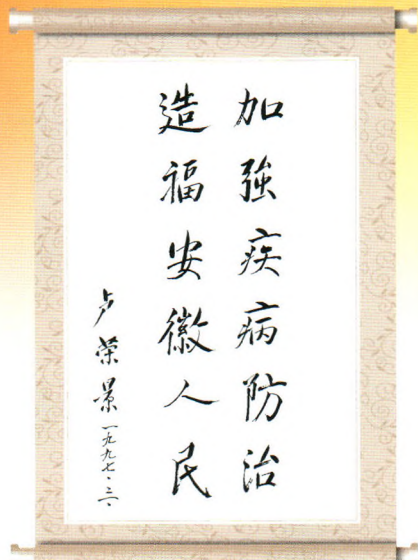 加強疾病防治
造福安徽人民
卢荣景 一九九七·三·